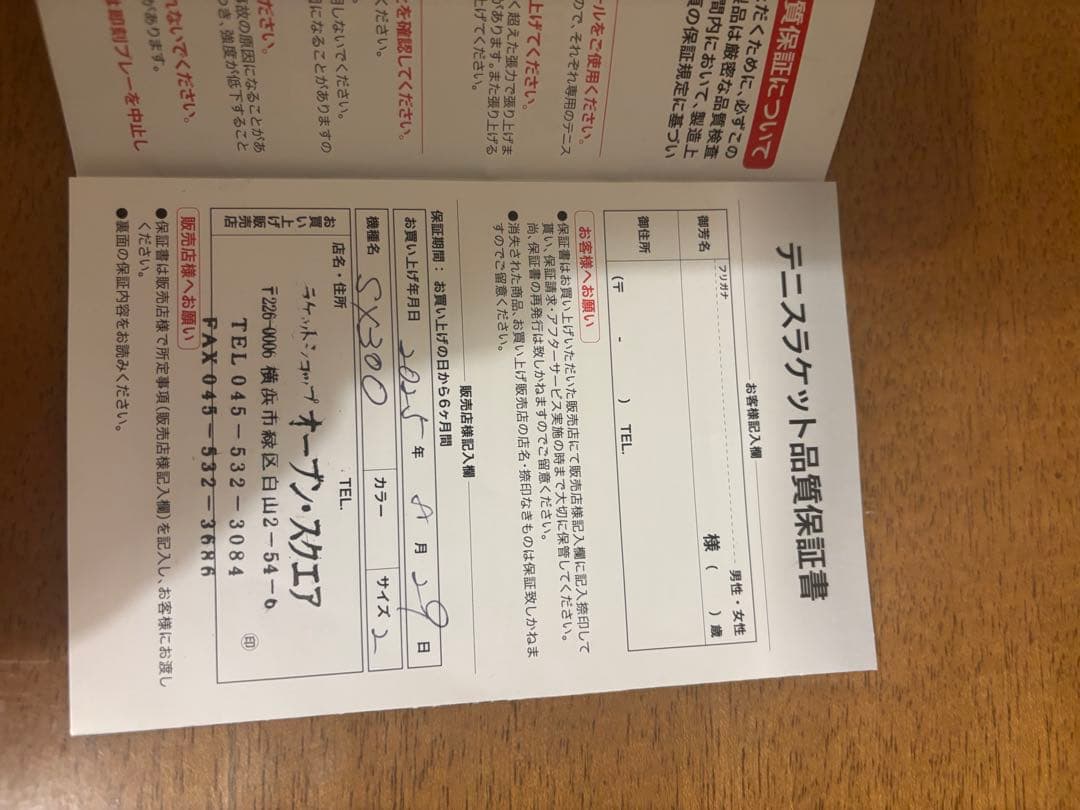 質保証について
だくために、必ずこの
製品は厳密な品質検査
間内において、製造上
の保証規定に基づい
ールをご使用ください。
ので、それぞれ専用のテニス
上げてください。
く超えた張力で張り上げま
があります。また張り上げる
上げてください。
を確認してください。
ください。
用しないでください。
因になることがありますの
ださい。
事故の原因になることがあ
つき、強度が低下すること
れないでください。
があります。
は即刻プレーを中止し
テニスラケット品質保証書
お客様記入欄
御芳名
フリガナ
男性・女性
様 ( )歳
御住所
(〒 - ) TEL.
お客様へお願い
●保証書はお買い上げいただいた販売店にて販売店様記入欄に記入捺印して
貰い、保証請求・アフターサービス実施の時まで大切に保管してください。
尚、保証書の再発行は致しかねますのでご留意ください。
●消失された商品、お買い上げ販売店の店名・捺印なきものは保証致しかねま
すのでご留意ください。
販売店様記入欄
保証期間：お買い上げの日から6ヶ月間
お買い上げ年月日 2025 年 8 月 29 日
機種名 SX300 カラー サイズ 2
お買い上げ販売店
店名・住所 TEL.
ラケットショップ オープン・スクエア
〒226-0006 横浜市緑区白山2-54-6
TEL 045-532-3084
FAX 045-532-3686
印
販売店様へお願い
●保証書は販売店様で所定事項(販売店様記入欄)を記入し、お客様にお渡し
ください。
●裏面の保証内容をお読みください。